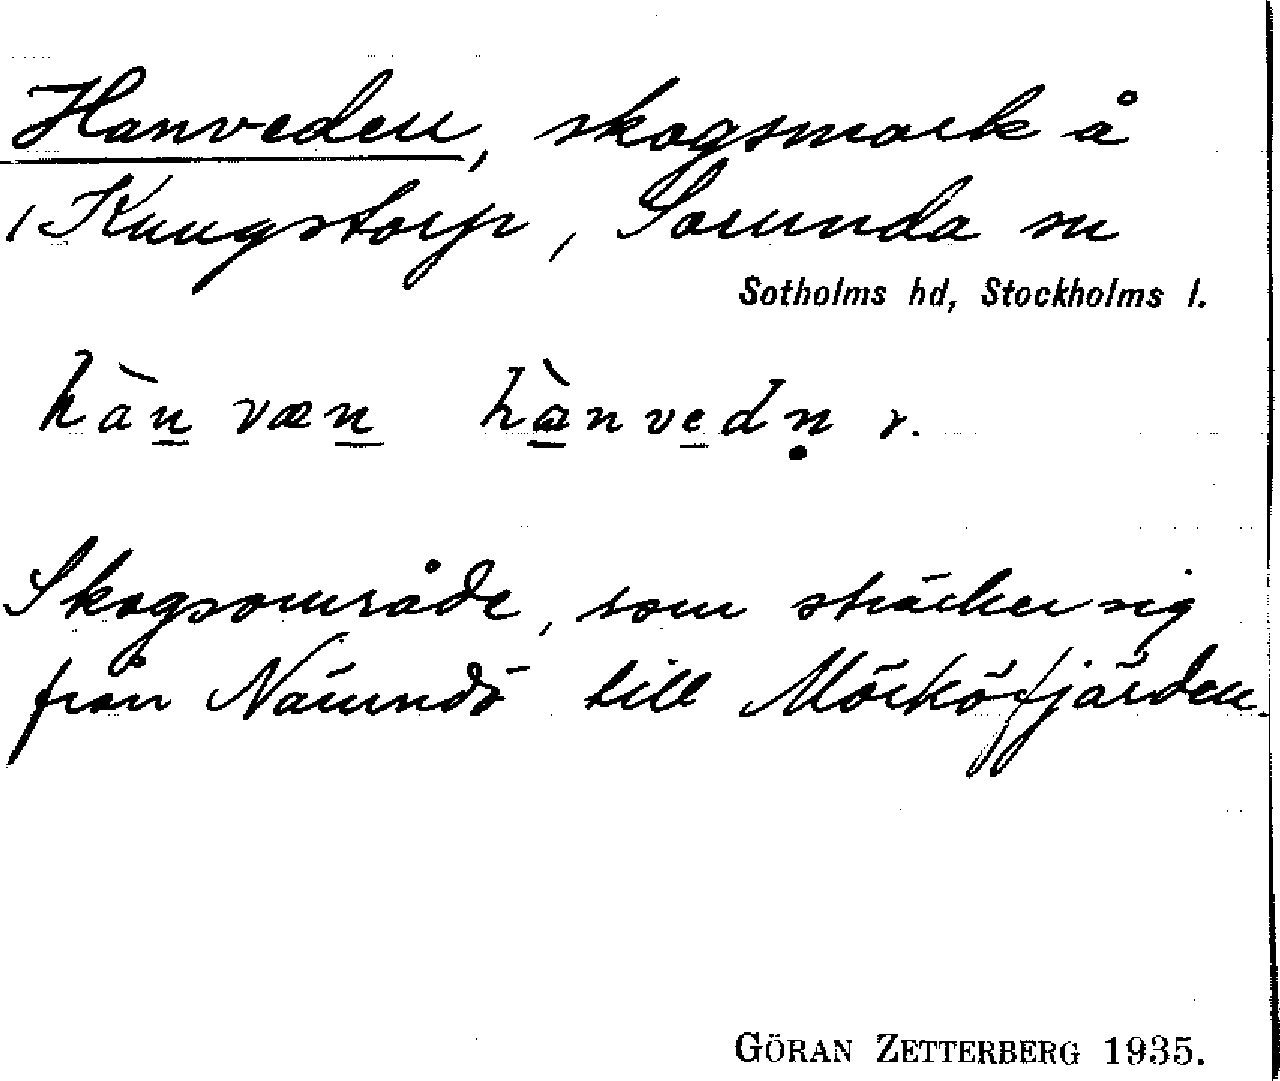 Hanveden, skogsmark å
Kungstorp, Sorunda sn
Sotholms hd, Stockholms l.
hàn væn hànvedn̥ r.
Skogsområde, som sträcker sig
från Nämndö till Mörköfjärden.
GÖRAN ZETTERBERG 1935.